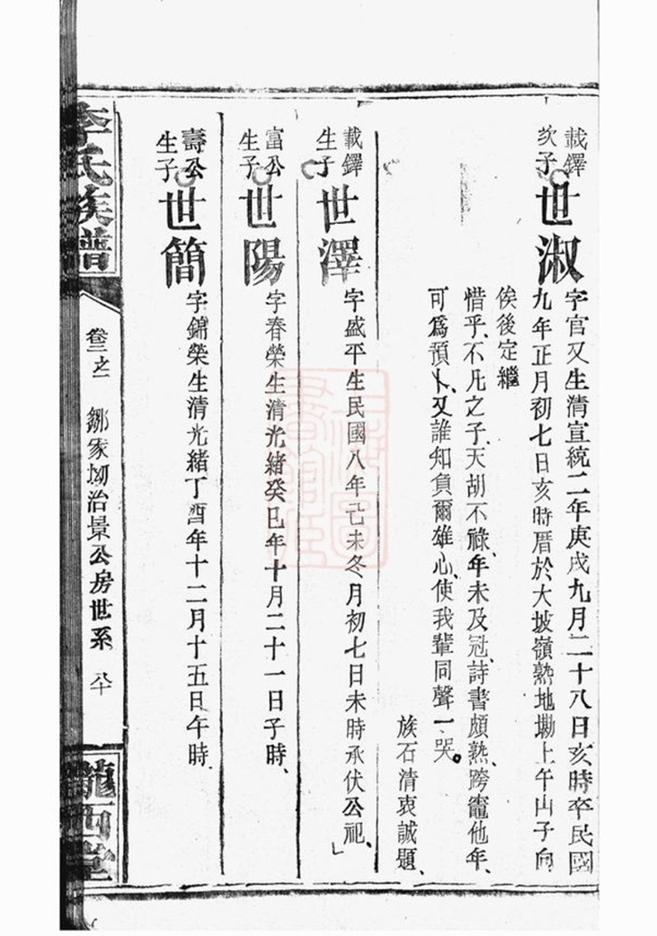 載鐸
次子
世淑
字官又生清宣統二年庚戌九月二十八日亥時卒民國
九年正月初七日亥時厝於大坡嶺熟地塝上午山子向
俟後定繼
惜乎、不凡之子、天胡不祿、年未及冠、詩書頗熟、跨竈他年、
可爲預卜、又誰知負爾雄心、使我輩同聲一哭。
族石清衷誠題、
載鐸
生子
世澤
字盛平生民國八年己未冬月初七日未時承伏公祀、」
富公
生子
世陽
字春榮生清光緒癸巳年十月二十一日子時、
壽公
生子
世簡
字錦榮生清光緒丁酉年十二月十五日午時、
李氏族譜
卷三之一
鄒家坳治景公房世系
八十
隴西堂